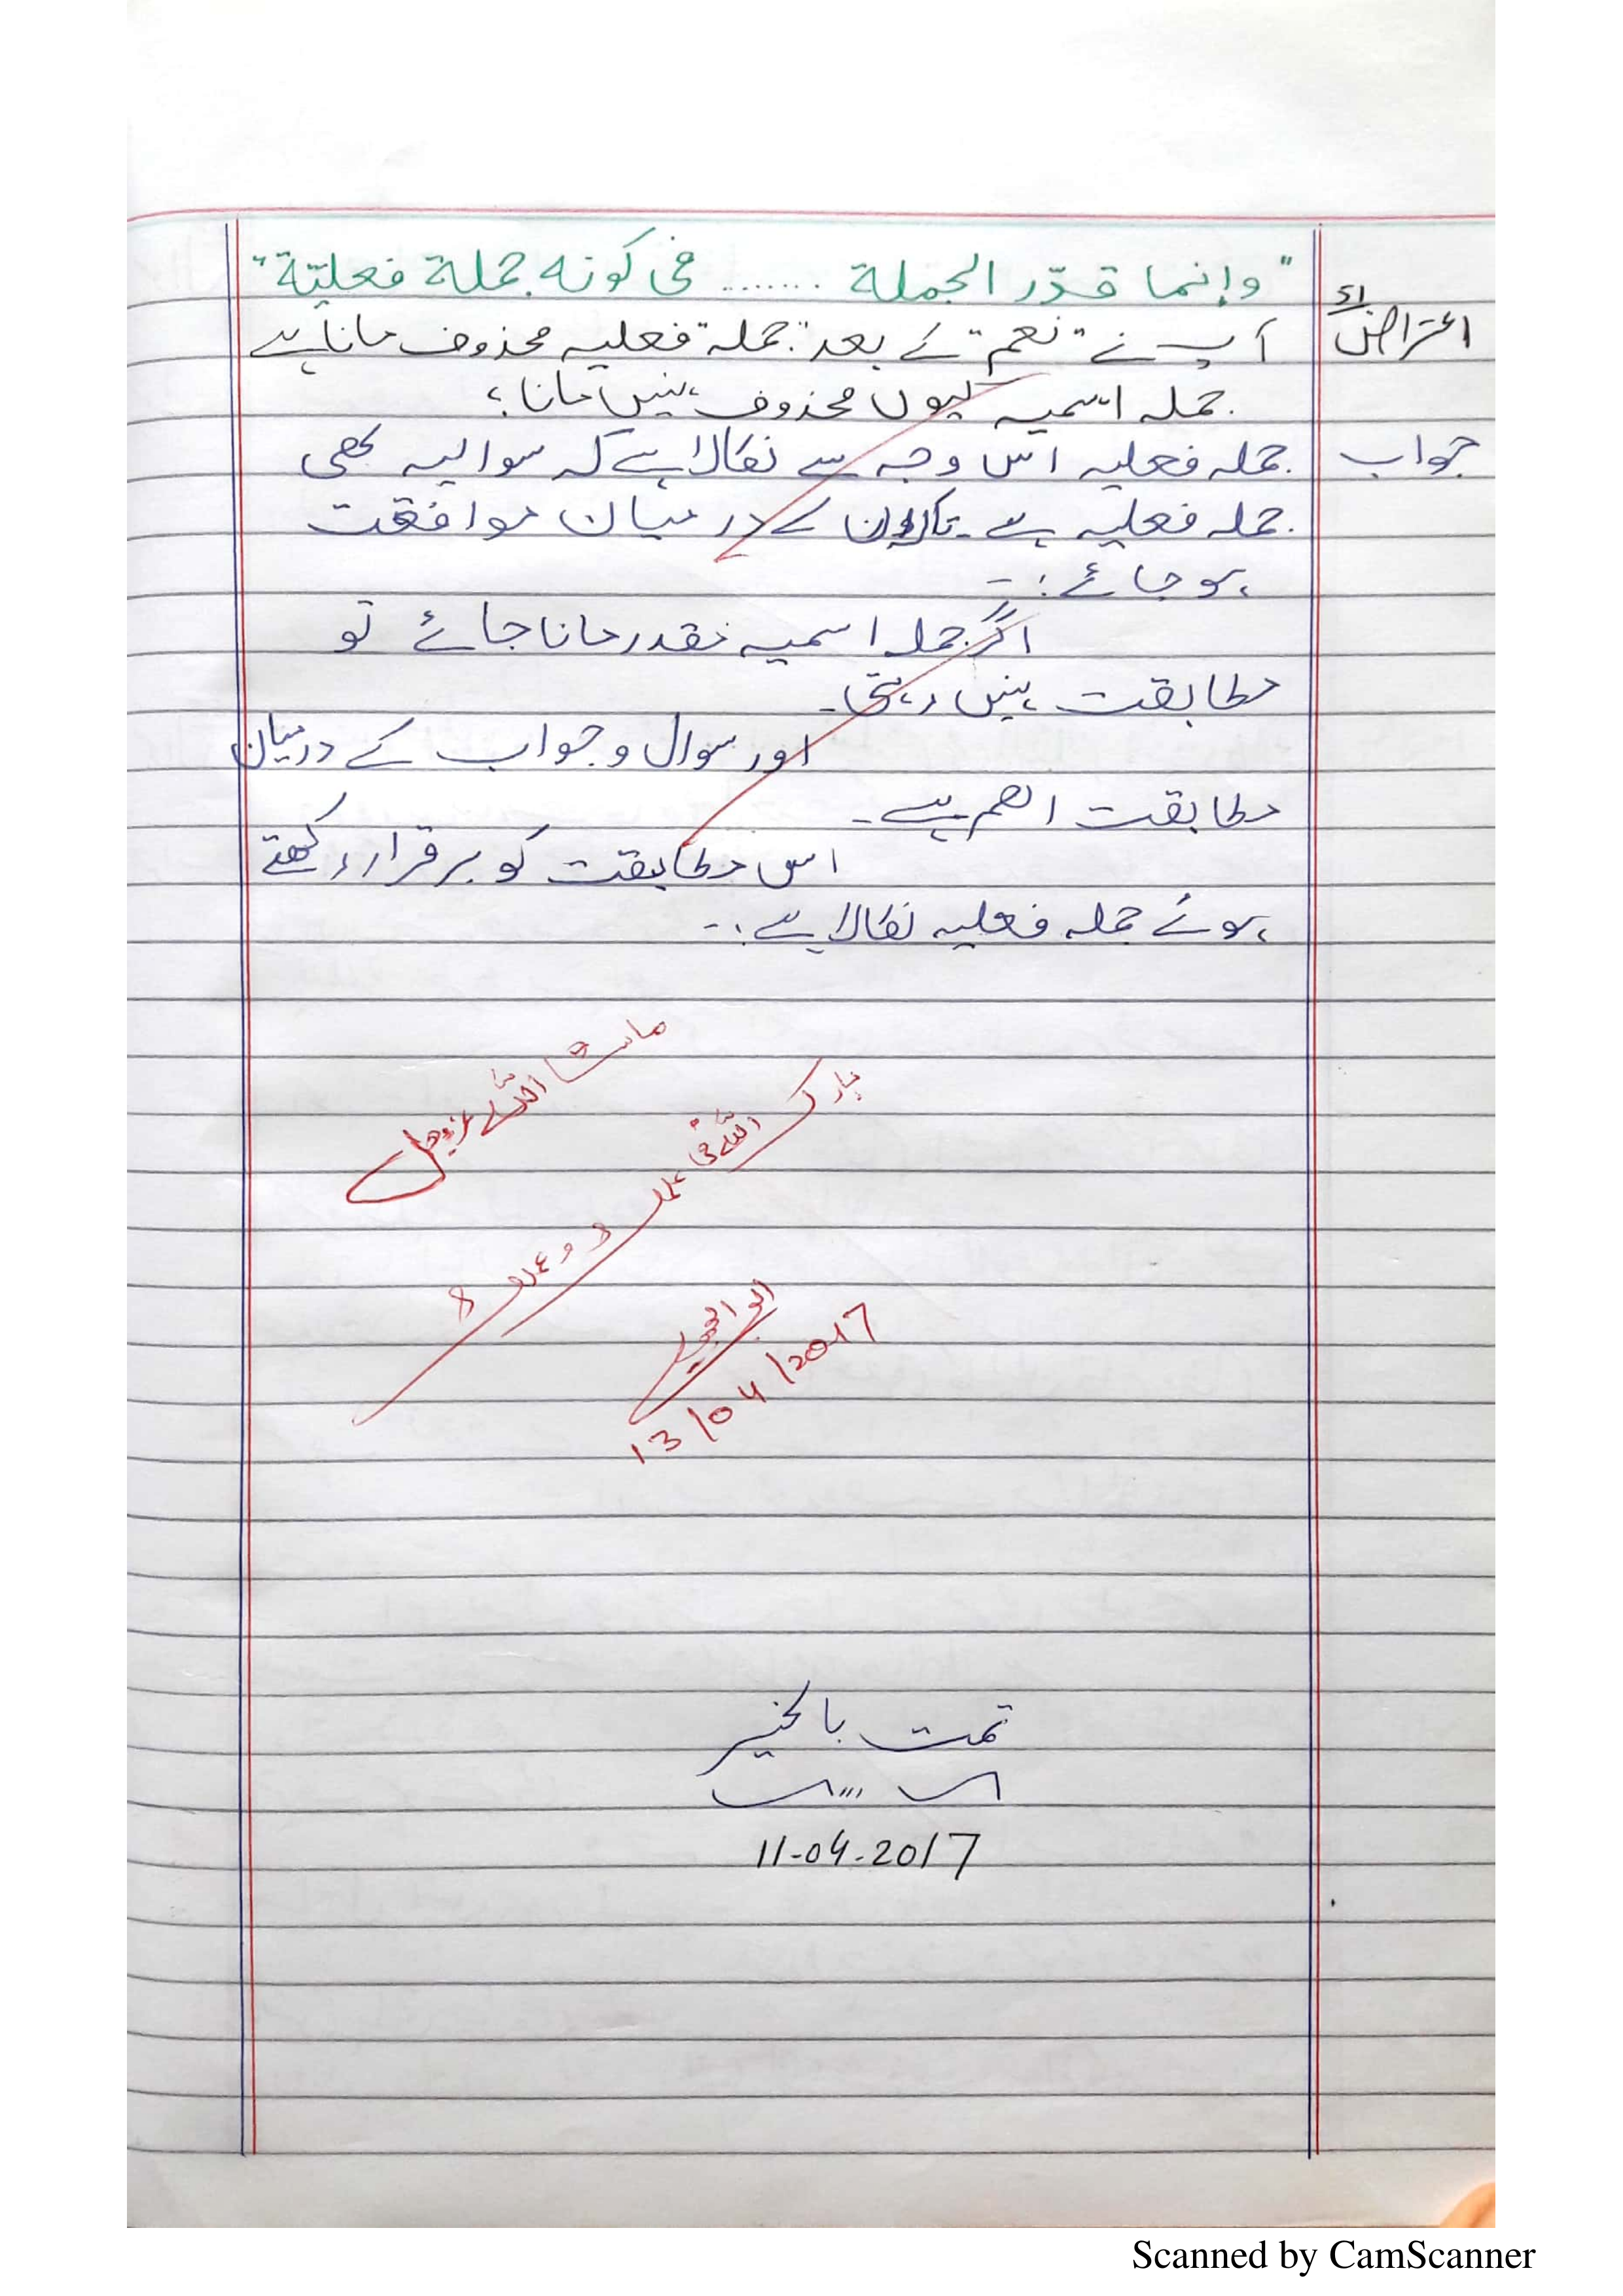 "وإنما قدّر الجملة ....... فی كونه جملة فعليّة"
اعتراض
آپ نے "نعم" کے بعد "جملہ فعلیہ محذوف مانا ہے
جملہ اسمیہ کیوں محذوف نہیں مانا؟
جواب
جملہ فعلیہ اس وجہ سے نکالا ہے کہ سوالیہ بھی
جملہ فعلیہ ہے۔ تاکہ ان کے درمیان موافقت
ہوجائے:-
اگر جملہ اسمیہ مقدر مانا جائے تو
مطابقت نہیں رہتی۔
اور سوال و جواب کے درمیان
مطابقت اھم ہے۔
اس مطابقت کو برقرار رکھتے
ہوئے جملہ فعلیہ نکالا ہے:-
ماشاء اللہ عزوجل
بارک اللہ فی علمہ و عملہ
13/04/2017
تمت بالخیر
11-04-2017
Scanned by CamScanner